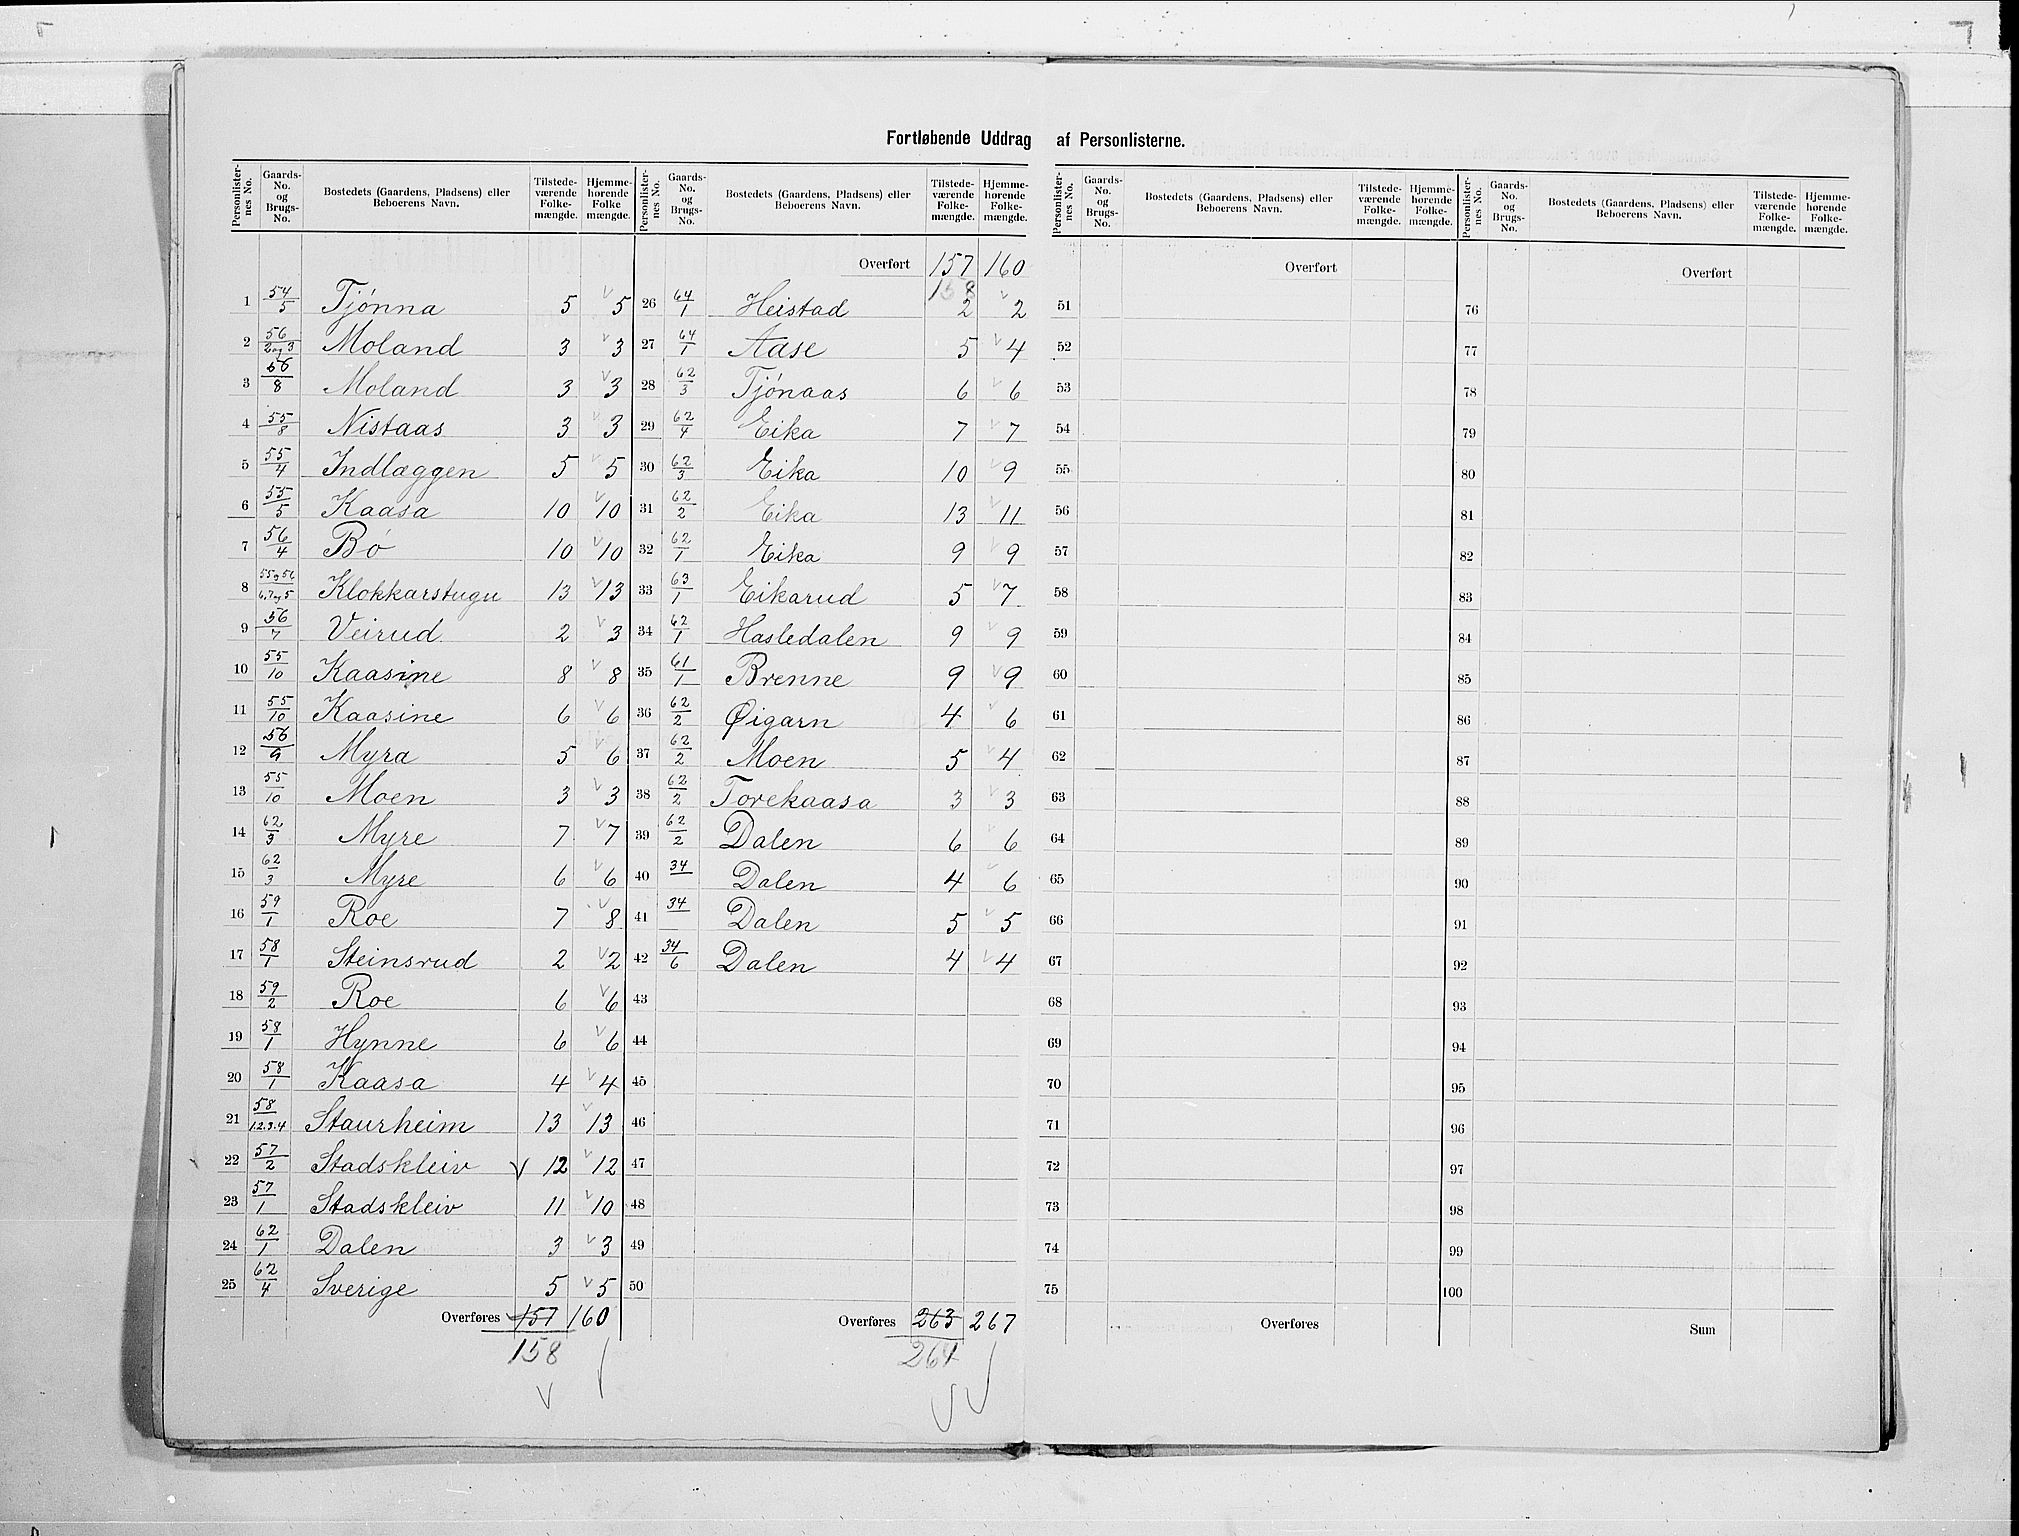 Fortløbende Uddrag af Personlisterne.
Personlister-nes No. Gaards-No. og Brugs-No. Bostedets (Gaardens, Pladsens) eller Beboerens Navn. Tilstede-værende Folke-mængde. Hjemme-hørende Folke mængde.
1 54/5 Tjønna 5 v 5
2 56/2 og 3 Moland 3 v 3
3 56/8 Moland 3 v 3
4 55/8 Nistaas 3 v 3
5 55/4 Indlæggen 5 v 5
6 55/5 Kaasa 10 v 10
7 56/4 Bø 10 v 10
8 55 og 56/6,7 og 5 Klokkarstugu 13 v 13
9 56/7 Veirud 2 v 3
10 55/10 Kaasine 8 v 8
11 55/10 Kaasine 6 v 6
12 56/9 Myra 5 v 6
13 55/10 Moen 3 v 3
14 62/3 Myre 7 v 7
15 62/3 Myre 6 v 6
16 59/1 Roe 7 v 8
17 58/1 Steinsrud 2 v 2
18 59/2 Roe 6 v 6
19 58/1 Hynne 6 v 6
20 58/1 Kaasa 4 v 4
21 58/1.2.3.4 Staurheim 13 v 13
22 57/2 Stadskleiv v 12 v 12
23 57/1 Stadskleiv 11 v 10
24 62/1 Dalen 3 v 3
25 62/4 Sverige 5 v 5
Overføres 157 160
158
Personlister-nes No. Gaards-No. og Brugs-No. Bostedets (Gaardens, Pladsens) eller Beboerens Navn. Tilstede-værende Folke-mængde. Hjemme-hørende Folke-mængde.
Overført 157 160
158
26 64/1 Heistad 2 v 2
27 64/1 Aase 5 v 4
28 62/3 Tjønaas 6 v 6
29 62/4 Eika 7 v 7
30 62/3 Eika 10 v 9
31 62/2 Eika 13 v 11
32 62/1 Eika 9 v 9
33 63/1 Eikarud 5 v 7
34 62/1 Hasledalen 9 v 9
35 61/1 Brenne 9 v 9
36 62/2 Øigarn 4 v 6
37 62/2 Moen 5 v 4
38 62/2 Torekaasa 3 v 3
39 62/2 Dalen 6 v 6
40 34 Dalen 4 v 6
41 34 Dalen 5 v 5
42 34/6 Dalen 4 v 4
43
44
45
46
47
48
49
50
Overføres 263 267
264
Personlister-nes No. Gaards-No. og Brugs-No. Bostedets (Gaardens, Pladsens) eller Beboerens Navn. Tilstede-værende Folke-mængde. Hjemme-hørende Folke-mængde.
Overført
51
52
53
54
55
56
57
58
59
60
61
62
63
64
65
66
67
68
69
70
71
72
73
74
75
Overføres
Personlister-nes No. Gaards-No. og Brugs-No. Bostedets (Gaardens, Pladsens) eller Beboerens Navn. Tilstede-værende Folke-mængde. Hjemme-hørende Folke-mængde.
Overført
76
77
78
79
80
81
82
83
84
85
86
87
88
89
90
91
92
93
94
95
96
97
98
99
100
Sum